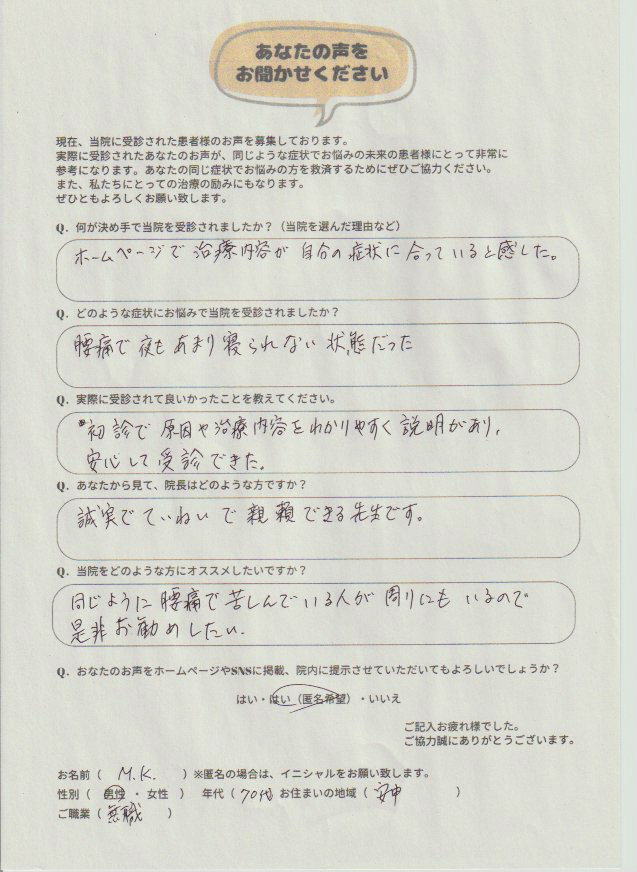 あなたの声を
お聞かせください
現在、当院に受診された患者様のお声を募集しております。
実際に受診されたあなたのお声が、同じような症状でお悩みの未来の患者様にとって非常に
参考になります。あなたの同じ症状でお悩みの方を救済するためにぜひご協力ください。
また、私たちにとっての治療の励みにもなります。
ぜひともよろしくお願い致します。
Q. 何が決め手で当院を受診されましたか？（当院を選んだ理由など）
ホームページで治療内容が自分の症状に合っていると感じた。
Q. どのような症状にお悩みで当院を受診されましたか？
腰痛で夜もあまり寝られない状態だった
Q. 実際に受診されて良いかったことを教えてください。
初診で原因や治療内容をわかりやすく説明があり、
安心して受診できた。
Q. あなたから見て、院長はどのような方ですか？
誠実でていねいで親頼できる先生です。
Q. 当院をどのような方にオススメしたいですか？
同じように腰痛で苦しんでいる人が周りにもいるので
是非お勧めしたい。
Q. おなたのお声をホームページやSNSに掲載、院内に提示させていただいてもよろしいでしょうか？
はい・はい（匿名希望）・いいえ
ご記入お疲れ様でした。
ご協力誠にありがとうございます。
お名前（ M.K. ）※匿名の場合は、イニシャルをお願い致します。
性別（ 男性 ・ 女性 ） 年代（ 70代 お住まいの地域（ 安中 ）
ご職業（ 無職 ）